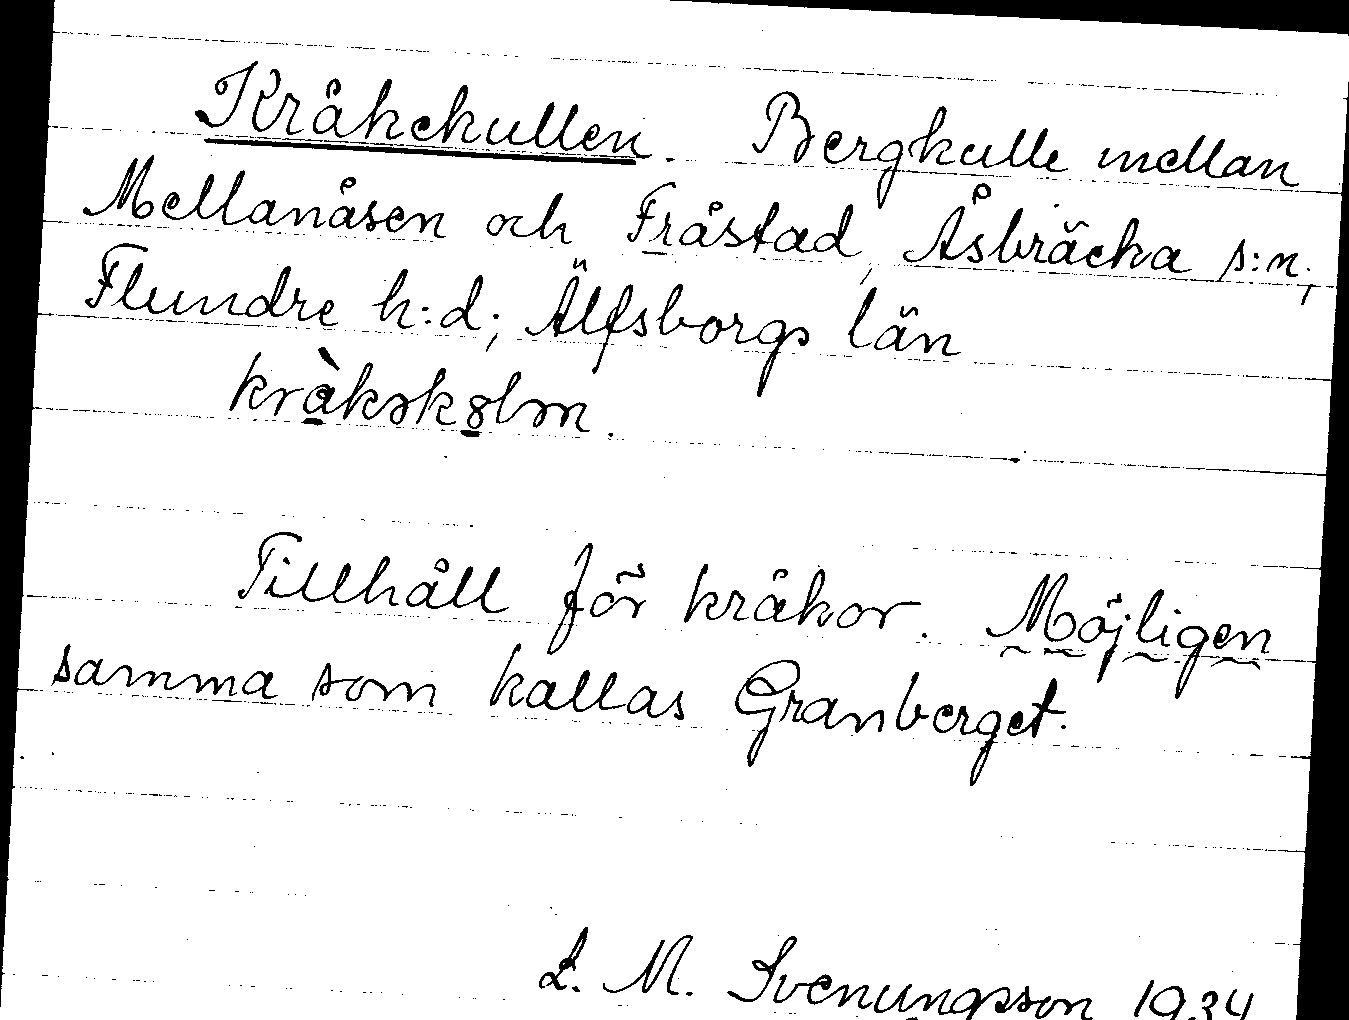 Kråkekullen. Bergkulle mellan
Mellanåsen och Fråstad, Åsbräcka s:n;
Flundre h:d; Älfsborgs län
kràkəkɷlən.
Tillhåll för kråkor. Möjligen
samma som kallas Granberget.
L. M. Svenungsson 1934